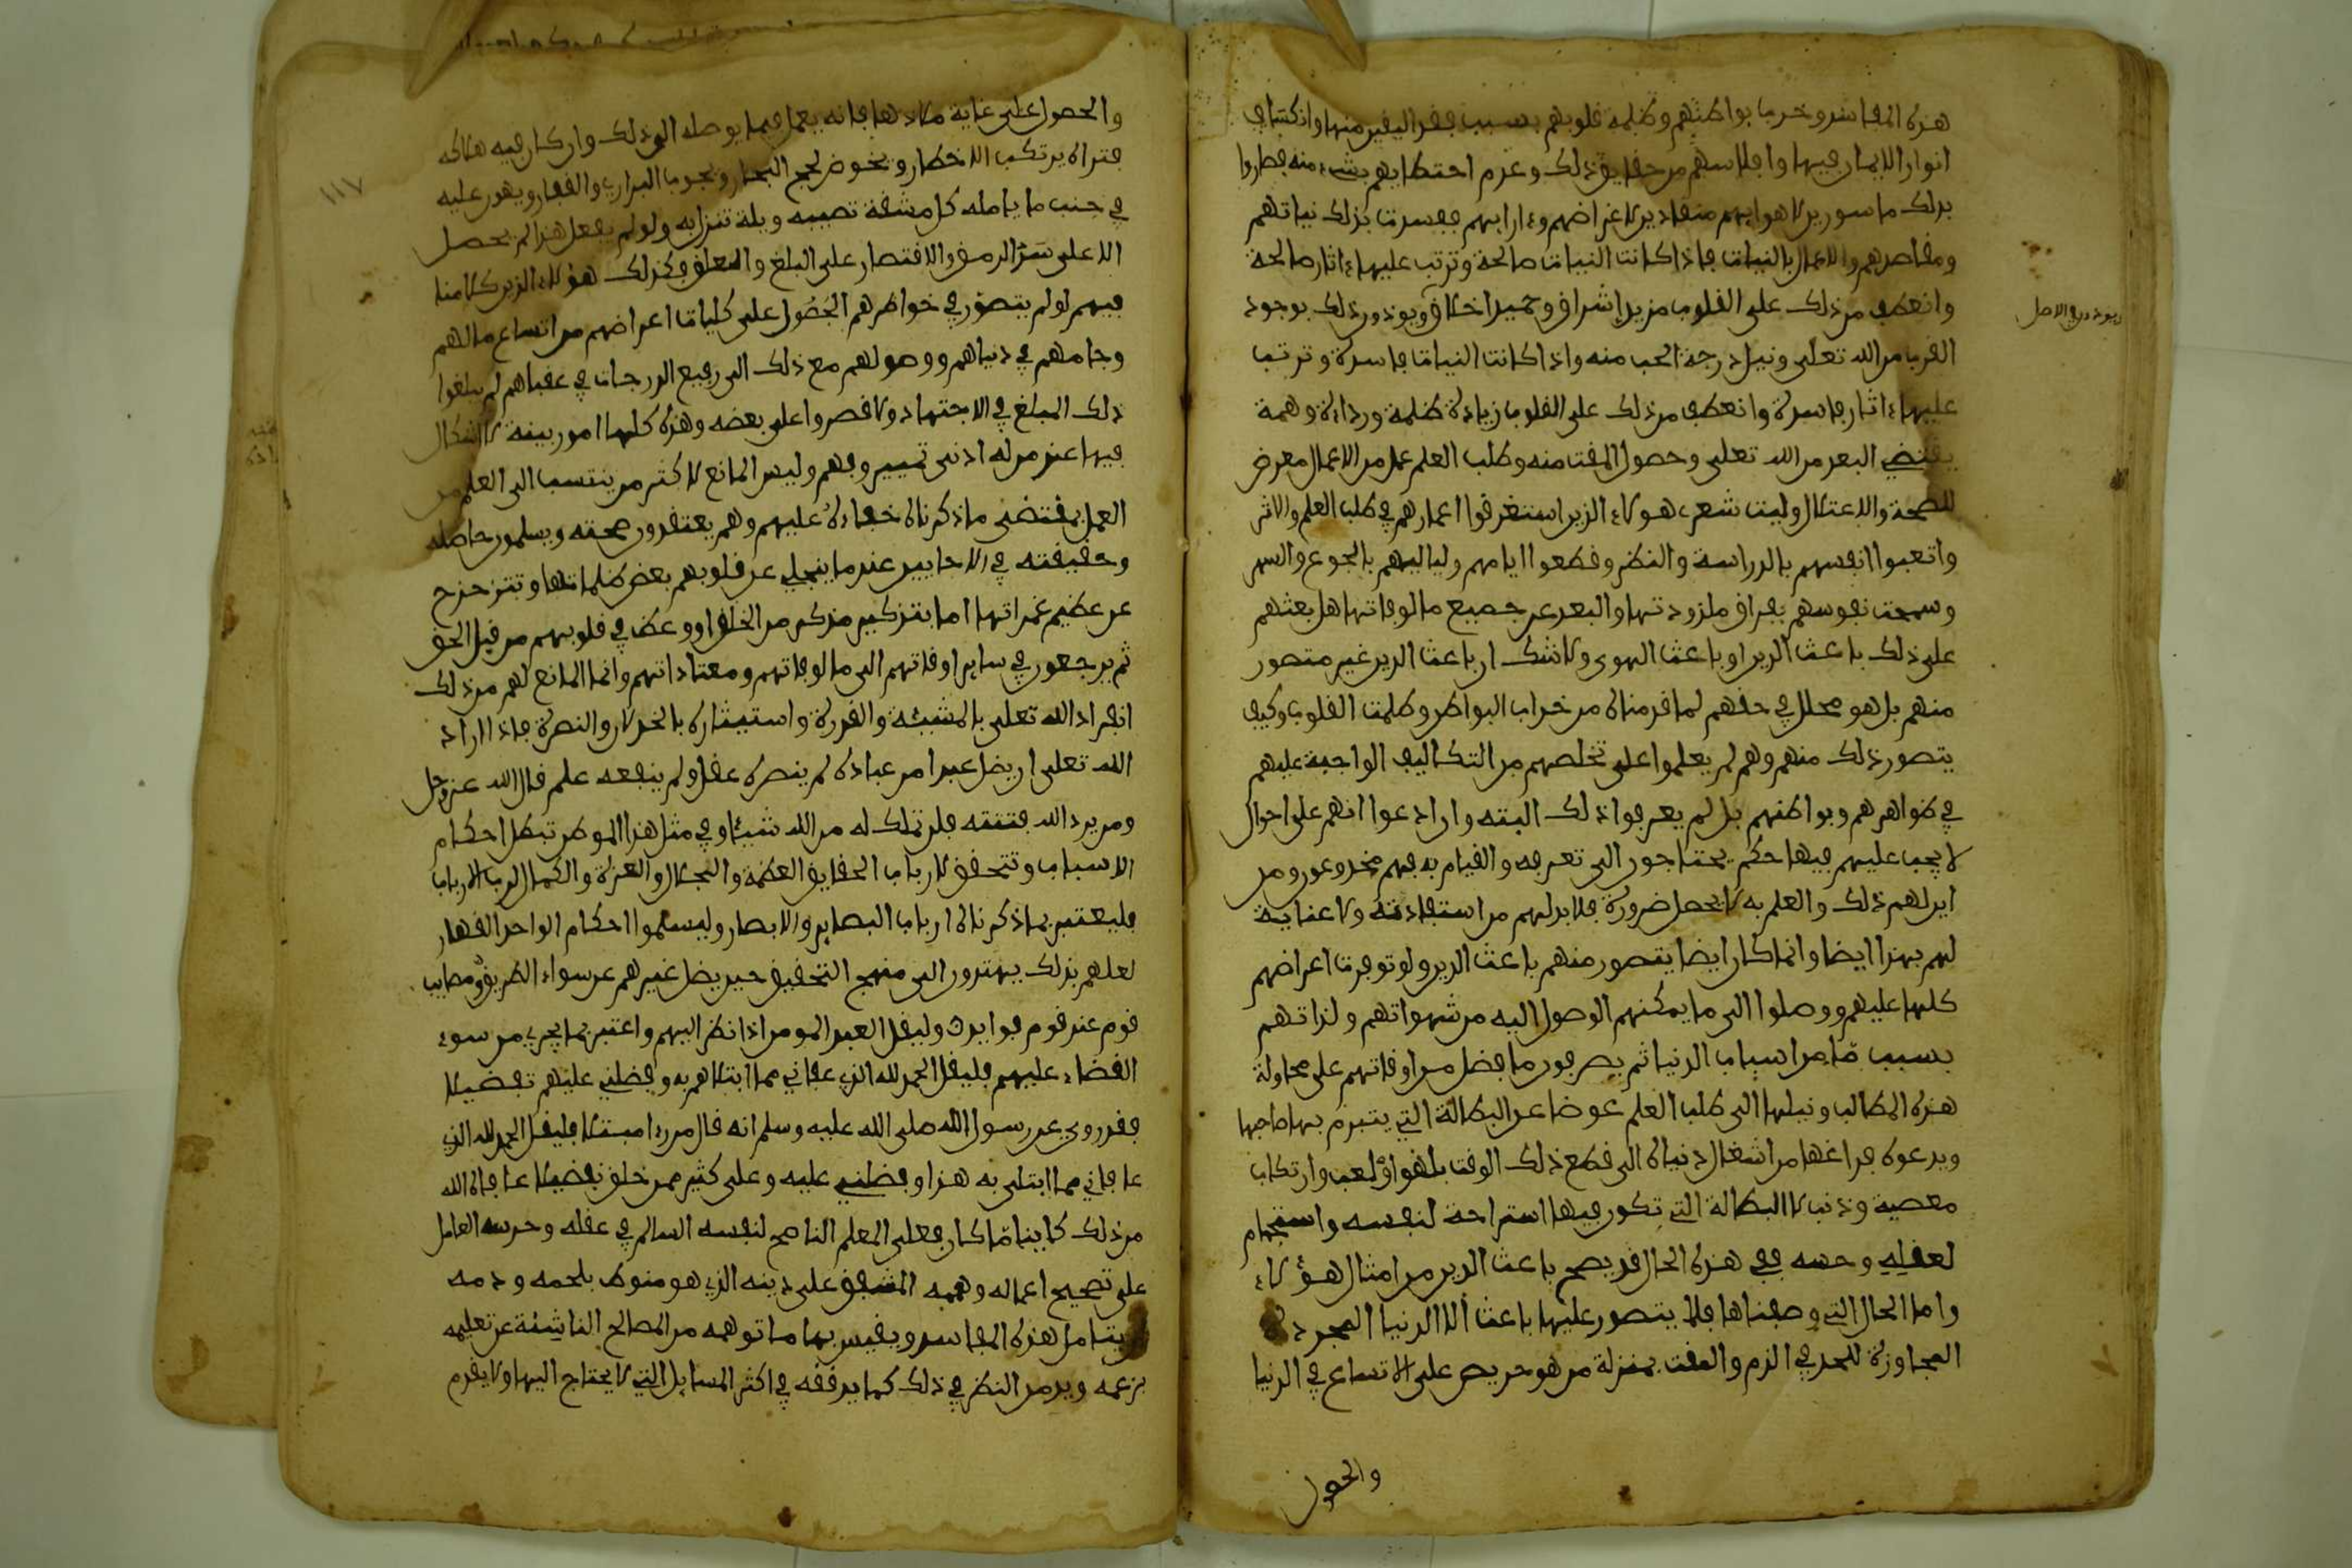 هذه المفاسد وخربت بواطنهم وظلمة قلوبهم بسبب فقد اليقين منها وانكساف
انوار الايمان فيها وافلاسهم من حقايق ذلك وعدم احتظايهم بشيء منه فصاروا
بذلك ماسورين لاهوايهم منقادين لاغراضهم وءارايهم ففسدت بذلك نياتهم
ومقاصدهم والاعمال بالنيات فاذا كانت النيات صالحة وترتب عليها ءاثار صالحة
وانعطف من ذلك على القلوب مزيد اشراق وحميد اخلاق ويوذن ذلك بوجود
القرب من الله تعلى ونيل درجة الحب منه واذا كانت النيات فاسدة وترتب
عليها ءاثار فاسدة وانعطف من ذلك على القلوب زيادة ظلمة ورداءة وهمة
يقتضي البعد من الله تعلى وحصول المقت منه وطلب العلم عمل من الاعمال معرض
للصحة والاعتلال وليت شعري هولاء الذين استغرقوا اعمارهم في طلب العلم والاثر
واتعبوا انفسهم بالدراسة والنظر وقطعوا ايامهم ولياليهم بالجوع والسهر
وسمحت نفوسهم بفراق ملذوذتها والبعد عن جميع مالوفاتها هل بعثهم
على ذلك باعث الدين او باعث الهوى ولا شك ان باعث الدين غير متصور
منهم بل هو محال في حقهم لما قدمناه من خراب البواطن وظلمت القلوب وكيف
يتصور ذلك منهم وهم لم يعلموا على تخلصهم من التكاليف الواجبة عليهم
في ظواهرهم وبواطنهم بل لم يعرفوا ذلك البته وان ادعوا انهم على احوال
لا يجب عليهم فيها حكم يحتاجون الى تعرفه والقيام به فهم مخدوعون ومن
اين لهم ذلك والعلم به لا يحصل ضرورة فلا بد لهم من استفادته ولا عناية
لهم بهذا ايضا وانما كان ايضا يتصور منهم باعث الدين ولو توفرت اعراضهم
كلها عليهم ووصلوا الى ما يمكنهم الوصول اليه من شهواتهم ولذاتهم
بسبب مّا من اسباب الدنيا ثم يصرفون ما فضل من اوقاتهم على محاولة
هذه المطالب ونيلها الى طلب العلم عوضا عن البطالة التي يتبرم بها صاحبها
ويدعوه فراغها من اشغال دنياه الى قطع ذلك الوقت بلهوا ولعب وارتكاب
معصية وذنب لا البطالة التي تكون فيها استراحة لنفسه واستجمام
لعقله وحسه ففي هذه الحال قد يصح باعث الدين من امثال هؤلاء
واما الحال التي وصفناها فلا يتصور عليها باعث الا الدنيا المجردة
المجاوزة للحد في الذم والمقت بمنزلة من هو حريص على الاتساع في الدنيا
والحصول
ويوذن ذلك الاصل
١١٧
والحصول على غاية ملاذها فانه يعمل فيما يوصله الى ذلك وان كان فيه هلاكه
فتراه يرتكب الاخطار ويخوض لجج البحار ويجوب البراري والقفار ويهون عليه
في جنب ما يامله كل مشقة تصيبه وبلية تنزل به ولو لم يفعل هذا لم يحصل
الا على سَدّ الرمق والاقتصار على البلغ والعلق وكذلك هؤلاء الذين كلامنا
فيهم لو لم يتصوّر في خواطرهم الحُصُول على كليات اعراضهم من اتساع مالهم
وجاههم في دنياهم ووصولهم مع ذلك الى رفيع الدرجات في عقباهم لم يبلغوا
ذلك المبلغ في الاجتهاد ولاقصروا على بعضه وهذه كلها امور بينة لا اشكال
فيها عند من له ادنى تمييز وفهم وليس المانع لاكثر من ينتسب الى العلم من
العمل بمقتضى ما ذكرناه خفاءه عليهم وهم يعتقدون صحته ويسلمون حاصله
وحقيقته في الاحايين عندما ينجلي عن قلوبهم بعض ظلماتها وتتزحزح
عن عظيم غمراتها اما بتذكير مذكر من الخلق او وعظ في قلوبهم من قبل الحق
ثم يرجعون في ساير اوقاتهم الى مالوفاتهم ومعتاداتهم وانما المانع لهم من ذلك
انفراد الله تعلى بالمشيئة والقدرة واستيثاره بالخذلان والنصرة فاذا اراد
الله تعلى ان يضل عبدا من عباده لم ينصره عقل ولم ينفعه علم قال الله عز وجل
ومن يرد الله فتنته فلن تملك له من الله شيئا وفي مثل هذا الموطن تبطل احكام
الاسباب وتتحقق لارباب الحقايق العظمة والجلال والعزة والكمال لرب الارباب
فليعتبر بما ذكرناه ارباب البصاير والابصار وليسلموا احكام الواحد القهار
لعلهم بذلك يهتدون الى منهج التحقيق حين يضل غيرهم عن سواء الطريق ومصايب
قوم عند قوم فوايد وليقل العبد المومن اذا نظر اليهم واعتبر بما يجري من سوء
القضاء عليهم فليقل الحمد لله الذي عافاني مما ابتلاهم به وفضلني عليهم تفضيلا
فقد روي عن رسول الله صلى الله عليه وسلم انه قال من رءا مبتلا فليقل الحمد لله الذي
عافاني مما ابتلى به هذا وفضلني عليه وعلى كثير ممن خلق تفضيلا عافاه الله
من ذلك كاينا مّا كان فعلى المعلم الناصح لنفسه السالم في عقله وحرسه العامل
على تصحيح اعماله وهممه المشفق على دينه الذي هو منوط بلحمه ودمه
ان يتامل هذه المفاسد ويقيس بها ما توهمه من المصالح الناشئة عن تعليمه
بزعمه ويدمن النظر في ذلك كما يدققه في اكثر المسايل التي لا يحتاج اليها ولا يقدم